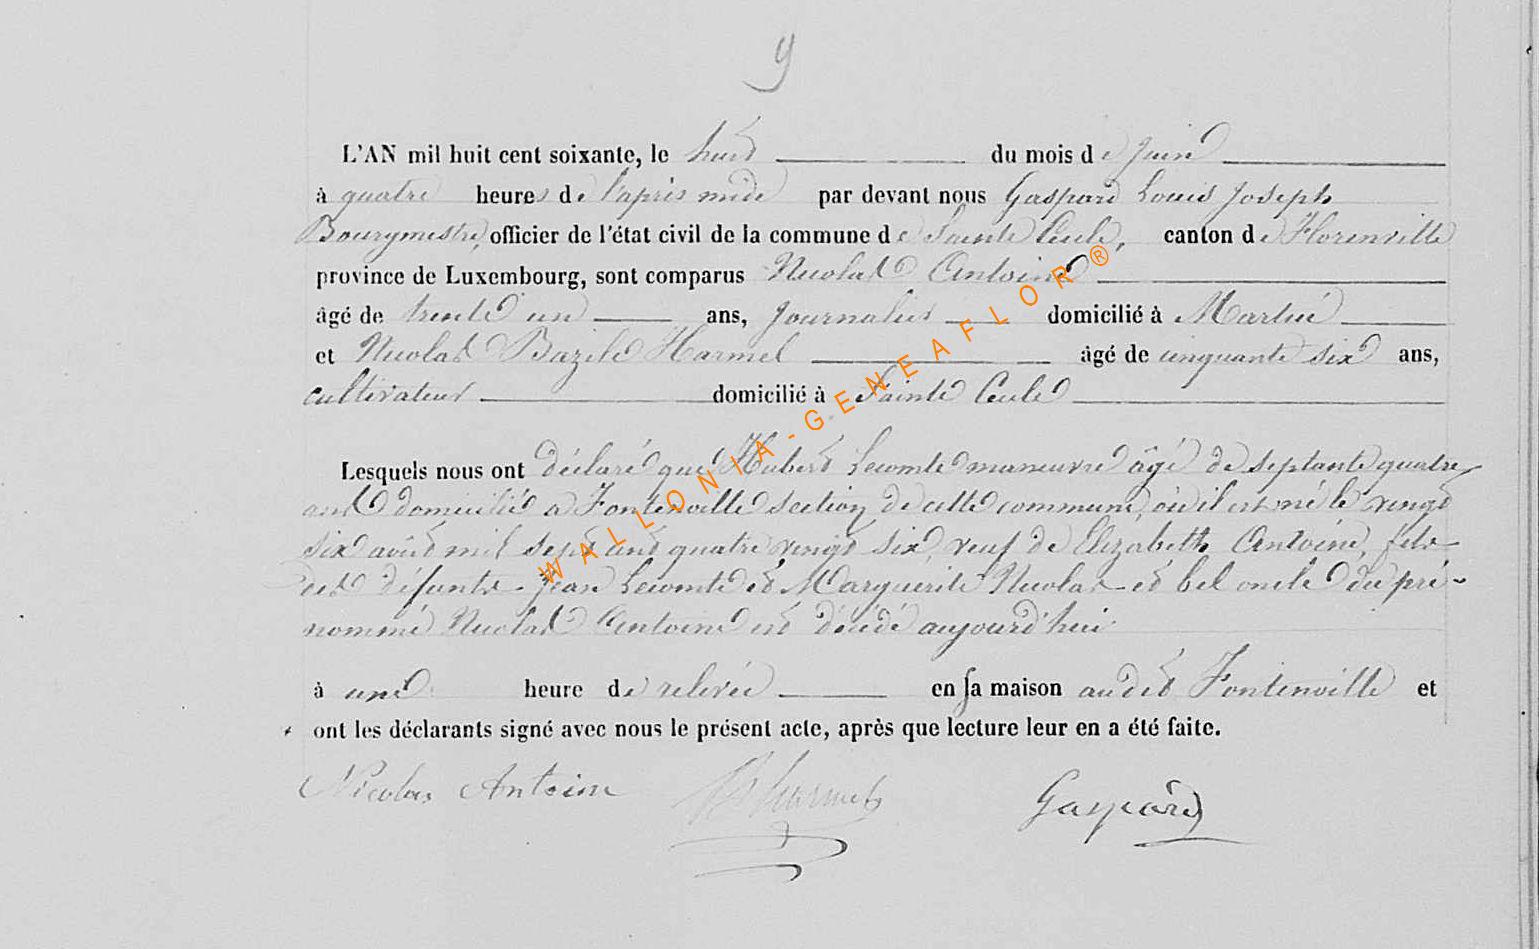 9
L'AN mil huit cent soixante, le huit du mois de Juin
à quatre heures de l'après midi par devant nous Gaspard Louis Joseph
Bourgmestre, officier de l'état civil de la commune de Sainte Cécile, canton de Florenville
province de Luxembourg, sont comparus Nicolas Antoine
âgé de trente un ans, journalier domicilié à Martué
et Nicolas Bazile Harmel âgé de cinquante six ans,
cultivateur domicilié à Sainte Cécile
Lesquels nous ont déclaré que Hubert Lecomte manœuvre âgé de septante quatre
ans domicilié a Fontenoille section de cette commune, où il est né le vingt
six août mil sept cent quatre vingt six, veuf de Elizabeth Antoine, fils
des défunts Jean Lecomte et Marguérite Nicolas et bel oncle du pré-
nommé Nicolas Antoine est décédé aujourd'hui
à une heure de relevée en sa maison audit Fontenoille et
ont les déclarants signé avec nous le présent acte, après que lecture leur en a été faite.
Nicolas Antoine Harmel Gaspard
WALLONIA-GENEAFLOR®